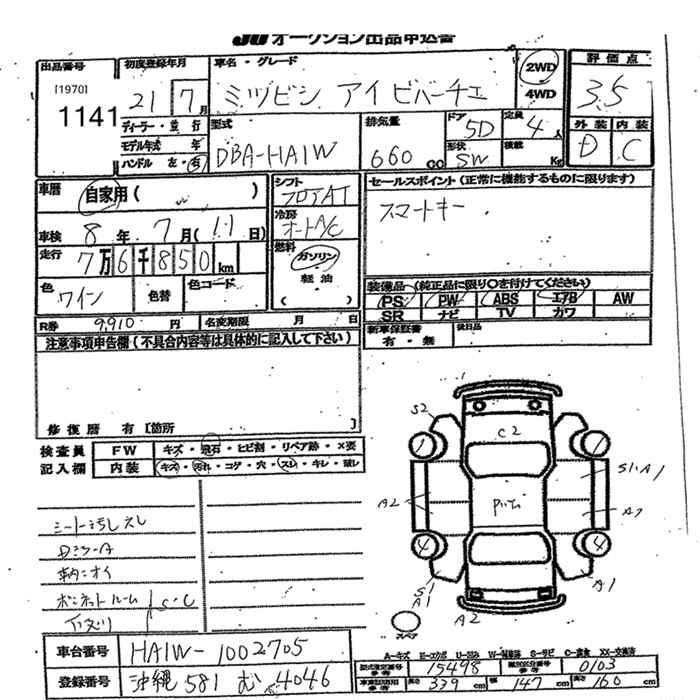 JU オークション出品申込書
出品番号 初度登録年月 車名・グレード 2WD 4WD 評価点
[1970]
1141
21 7月
ミツビシ アイ ビバーチェ
3.5
ディーラー・並行
モデル年式 年
ハンドル 左・右
型式 DBA-HA1W
排気量 660 cc
ドア 5D 形状 SW
定員 4人 積載 Kg
外装 D 内装 C
車歴 自家用 ( )
シフト フロアAT
セールスポイント (正常に機能するものに限ります)
スマートキー
車検 8年 7月 (11日)
冷房 オートA/C
走行 7万6千850km
燃料 ガソリン ・ 軽油 ( )
色 ワイン 色替 色コード
装備品 (純正品に限り○を付けてください)
PS PW ABS エアB AW
SR ナビ TV カワ
R券 9,910円 名変期限 月 日
新車保証書 有・無 後日品
注意事項申告欄 (不具合内容等は具体的に記入して下さい)
修復歴 有 [箇所 ]
検査員記入欄
FW キズ・飛石・ヒビ割・リペア跡・×要
内装 キズ・汚れ・コゲ・穴・スレ・キレ・垂レ
シート汚しスレ
車内ニオイ
ボンネットルーム S・C
下廻り
S2
C2
1 1
S1・A1
A2
A2
4 4
S1
A1
A1
A2
スペア
車台番号 HA1W-1002705
登録番号 沖縄 581 む 4046
A-キズ E-エクボ U-凹み W-補修跡 S-サビ C-腐食 XX-交換済
型式指定番号 参考 15498 類別区分番号 参考 0103
長さ 339cm 幅 147cm 高さ 160cm